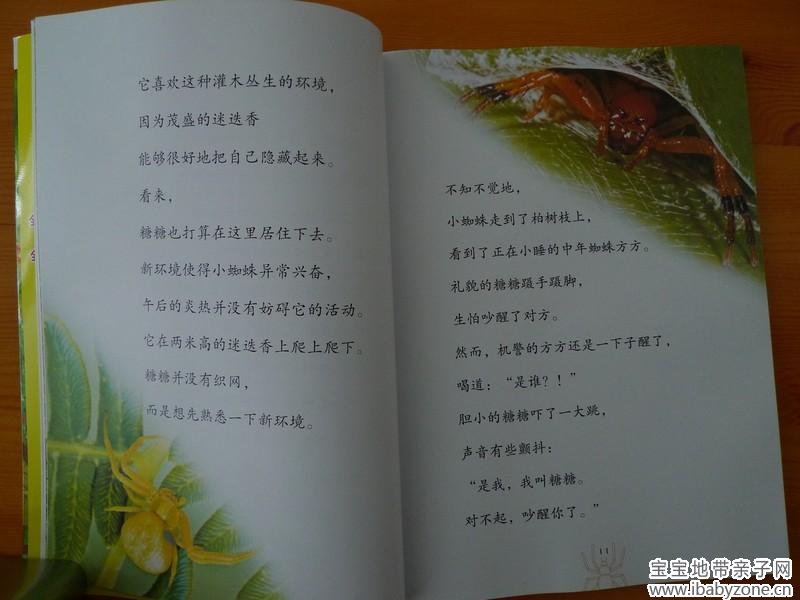 它喜欢这种灌木丛生的环境，
因为茂盛的迷迭香
能够很好地把自己隐藏起来。
看来，
糖糖也打算在这里居住下去。
新环境使得小蜘蛛异常兴奋，
午后的炎热并没有妨碍它的活动。
它在两米高的迷迭香上爬上爬下。
糖糖并没有织网，
而是想先熟悉一下新环境。
不知不觉地，
小蜘蛛走到了柏树枝上，
看到了正在小睡的中年蜘蛛方方。
礼貌的糖糖蹑手蹑脚，
生怕吵醒了对方。
然而，机警的方方还是一下子醒了，
喝道：“是谁？！”
胆小的糖糖吓了一大跳，
声音有些颤抖：
“是我，我叫糖糖。
对不起，吵醒你了。”
宝宝地带亲子网
www.ibabyzone.cn